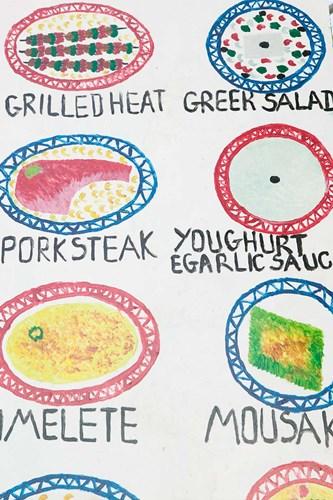 GRILLED HEAT
GREEK SALAD
PORK STEAK
YOUGHURT
EGARLIC SAUC
IMELETE
MOUSAK